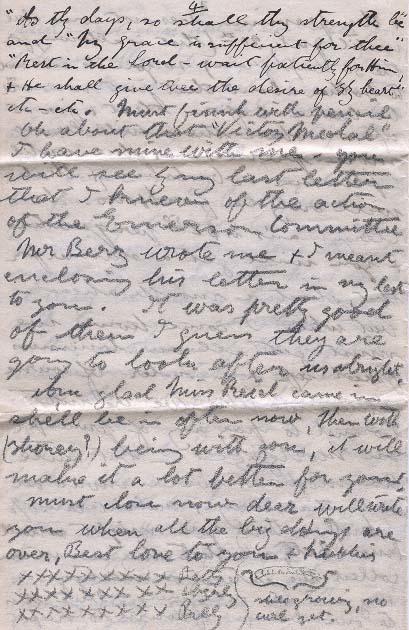 4
"As thy days, so shall thy strength be"
and "My grace is sufficient for thee"
"Rest in the Lord - wait patiently for Him,
& He shall give thee the desire of thy heart"
etc - etc. Must finish with pencil
Oh about that "Victory Medal"
I have mine with me - you
will see by my last letter
that I knew of the action
of the Emerson Committee
Mr Berg wrote me & I meant
enclosing his letter in my last
to you. It was pretty good
of them I guess they are
going to look after us alright.
Am glad Miss Reid came in
she'll be in often now, then with
(Shorey?) being with you, it will
make it a lot better for you.
Must close now dear will write
you when all the big doings are
over, Best love to you &
xxxxxxxxx
xxxxxxxxx
xxxxxxxxx still growing, no